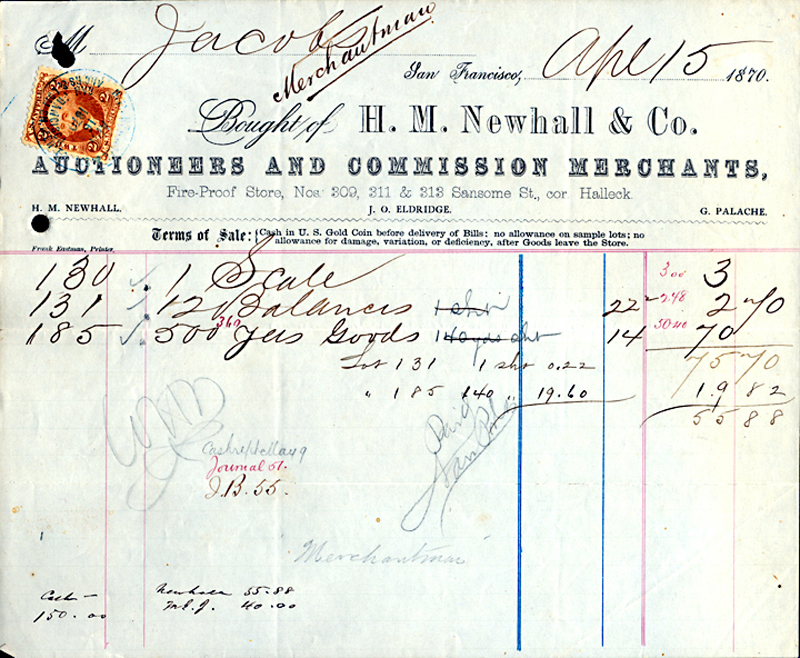 M Jacobs
Merchantman
San Francisco, Apl 15 1870.
Bought of H. M. Newhall & Co.
AUCTIONEERS AND COMMISSION MERCHANTS,
Fire-Proof Store, Nos 309, 311 & 313 Sansome St., cor Halleck.
H. M. NEWHALL. J. O. ELDRIDGE. G. PALACHE.
Terms of Sale: Cash in U. S. Gold Coin before delivery of Bills: no allowance on sample lots; no
allowance for damage, variation, or deficiency, after Goods leave the Store.
Frank Eastman, Printer.
130 1 Scale 3 00 3
131 12 Balances 1 sht 22 2 48 2 70
185 500 360 Yds Goods 140 yds sht 14 50 40 70
Lot 131 1 sht 0.22 75 70
" 185 140 " 19.60 19.82
55 88
Paid
Journal
J.B. 55.
"Merchantman"
Cash Newhall 55.88
150.00 40.00